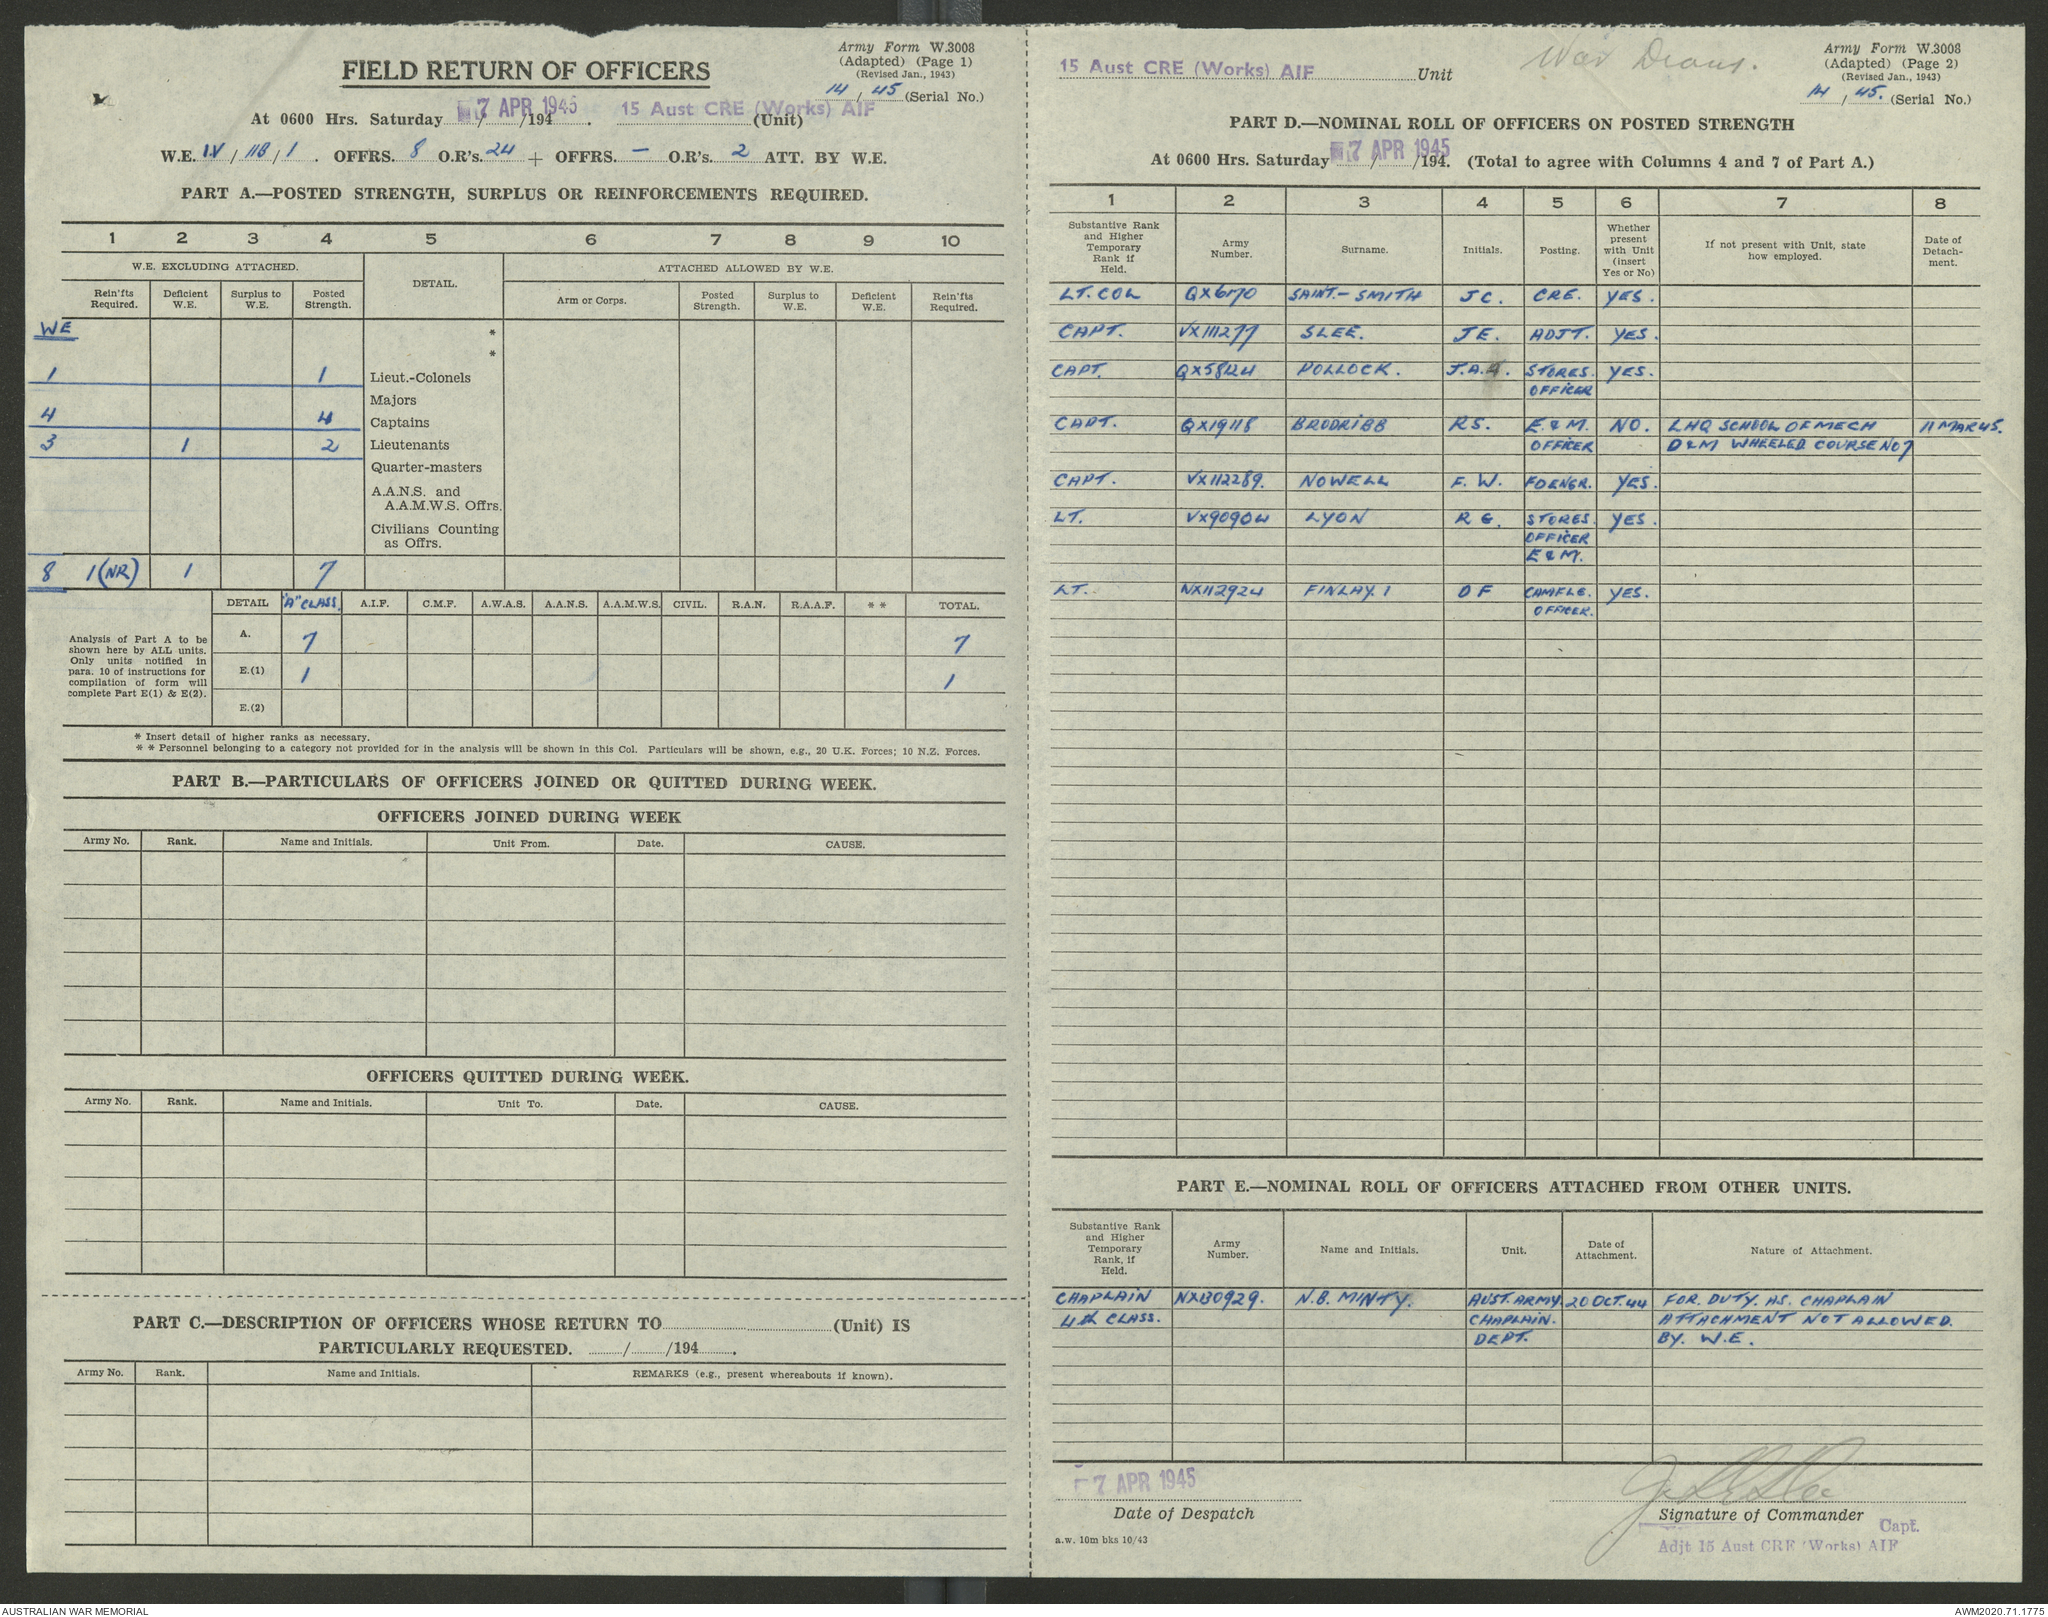 Army Form W.3008
(Adapted) (Page 1)
(Revised Jan., 1943)
14 / 45 (Serial No.)
FIELD RETURN OF OFFICERS
At 0600 Hrs. Saturday 7 APR 1945 /194 . 15 Aust CRE (Works) AIF (Unit)
W.E. IV / 11B / 1 . OFFRS. 8 O.R's. 24 + OFFRS. — O.R's. 2 ATT. BY W.E.
PART A.—POSTED STRENGTH, SURPLUS OR REINFORCEMENTS REQUIRED.
1 2 3 4 5 6 7 8 9 10
W.E. EXCLUDING ATTACHED. DETAIL. ATTACHED ALLOWED BY W.E.
Rein'fts Required. Deficient W.E. Surplus to W.E. Posted Strength. Arm or Corps. Posted Strength. Surplus to W.E. Deficient W.E. Rein'fts Required.
WE *
*
1 1 Lieut.-Colonels
Majors
4 4 Captains
3 1 2 Lieutenants
Quarter-masters
A.A.N.S. and
A.A.M.W.S. Offrs.
Civilians Counting
as Offrs.
8 1(NR) 1 7
DETAIL "A" CLASS. A.I.F. C.M.F. A.W.A.S. A.A.N.S. A.A.M.W.S. CIVIL. R.A.N. R.A.A.F. * * TOTAL.
Analysis of Part A to be
shown here by ALL units.
Only units notified in
para. 10 of instructions for
compilation of form will
complete Part E(1) & E(2).
A. 7 7
E.(1) 1 1
E.(2)
* Insert detail of higher ranks as necessary.
* * Personnel belonging to a category not provided for in the analysis will be shown in this Col. Particulars will be shown, e.g., 20 U.K. Forces; 10 N.Z. Forces.
PART B.—PARTICULARS OF OFFICERS JOINED OR QUITTED DURING WEEK.
OFFICERS JOINED DURING WEEK
Army No. Rank. Name and Initials. Unit From. Date. CAUSE.
OFFICERS QUITTED DURING WEEK.
Army No. Rank. Name and Initials. Unit To. Date. CAUSE.
PART C.—DESCRIPTION OF OFFICERS WHOSE RETURN TO (Unit) IS
PARTICULARLY REQUESTED. / /194 .
Army No. Rank. Name and Initials. REMARKS (e.g., present whereabouts if known).
15 Aust CRE (Works) AIF Unit
War Diary.
Army Form W.3008
(Adapted) (Page 2)
(Revised Jan., 1943)
14 / 45. (Serial No.)
PART D.—NOMINAL ROLL OF OFFICERS ON POSTED STRENGTH
At 0600 Hrs. Saturday 7 APR 1945 /194. (Total to agree with Columns 4 and 7 of Part A.)
1 2 3 4 5 6 7 8
Substantive Rank and Higher Temporary Rank if Held. Army Number. Surname. Initials. Posting. Whether present with Unit (insert Yes or No) If not present with Unit, state how employed. Date of Detach-ment.
LT. COL QX6170 SAINT-SMITH JC. CRE. YES.
CAPT. VX111277 SLEE. JE. ADJT. YES.
CAPT. QX5824 POLLOCK. J.A. STORES. YES.
OFFICER
CAPT. QX19118 BRODRIBB RS. E&M. NO. LHQ SCHOOL OF MECH 11 MAR 45.
OFFICER D&M WHEELED COURSE NO 7
CAPT. VX112289. NOWELL F. W. FDENGR. YES.
LT. VX90904 LYON R G. STORES. YES.
OFFICER
E&M.
LT. NX112924 FINLAY. OF CAMFLG. YES.
OFFICER.
PART E.—NOMINAL ROLL OF OFFICERS ATTACHED FROM OTHER UNITS.
Substantive Rank and Higher Temporary Rank, if Held. Army Number. Name and Initials. Unit. Date of Attachment. Nature of Attachment.
CHAPLAIN NX130929. N.B. MINTY. AUST. ARMY 20 OCT. 44 FOR. DUTY. AS. CHAPLAIN
4th CLASS. CHAPLAIN. ATTACHMENT NOT ALLOWED.
DEPT. BY. W.E.
7 APR 1945
Date of Despatch
Signature of Commander
Capt.
Adjt 15 Aust CRE (Works) AIF
a.w. 10m bks 10/43
AUSTRALIAN WAR MEMORIAL
AWM2020.71.1775